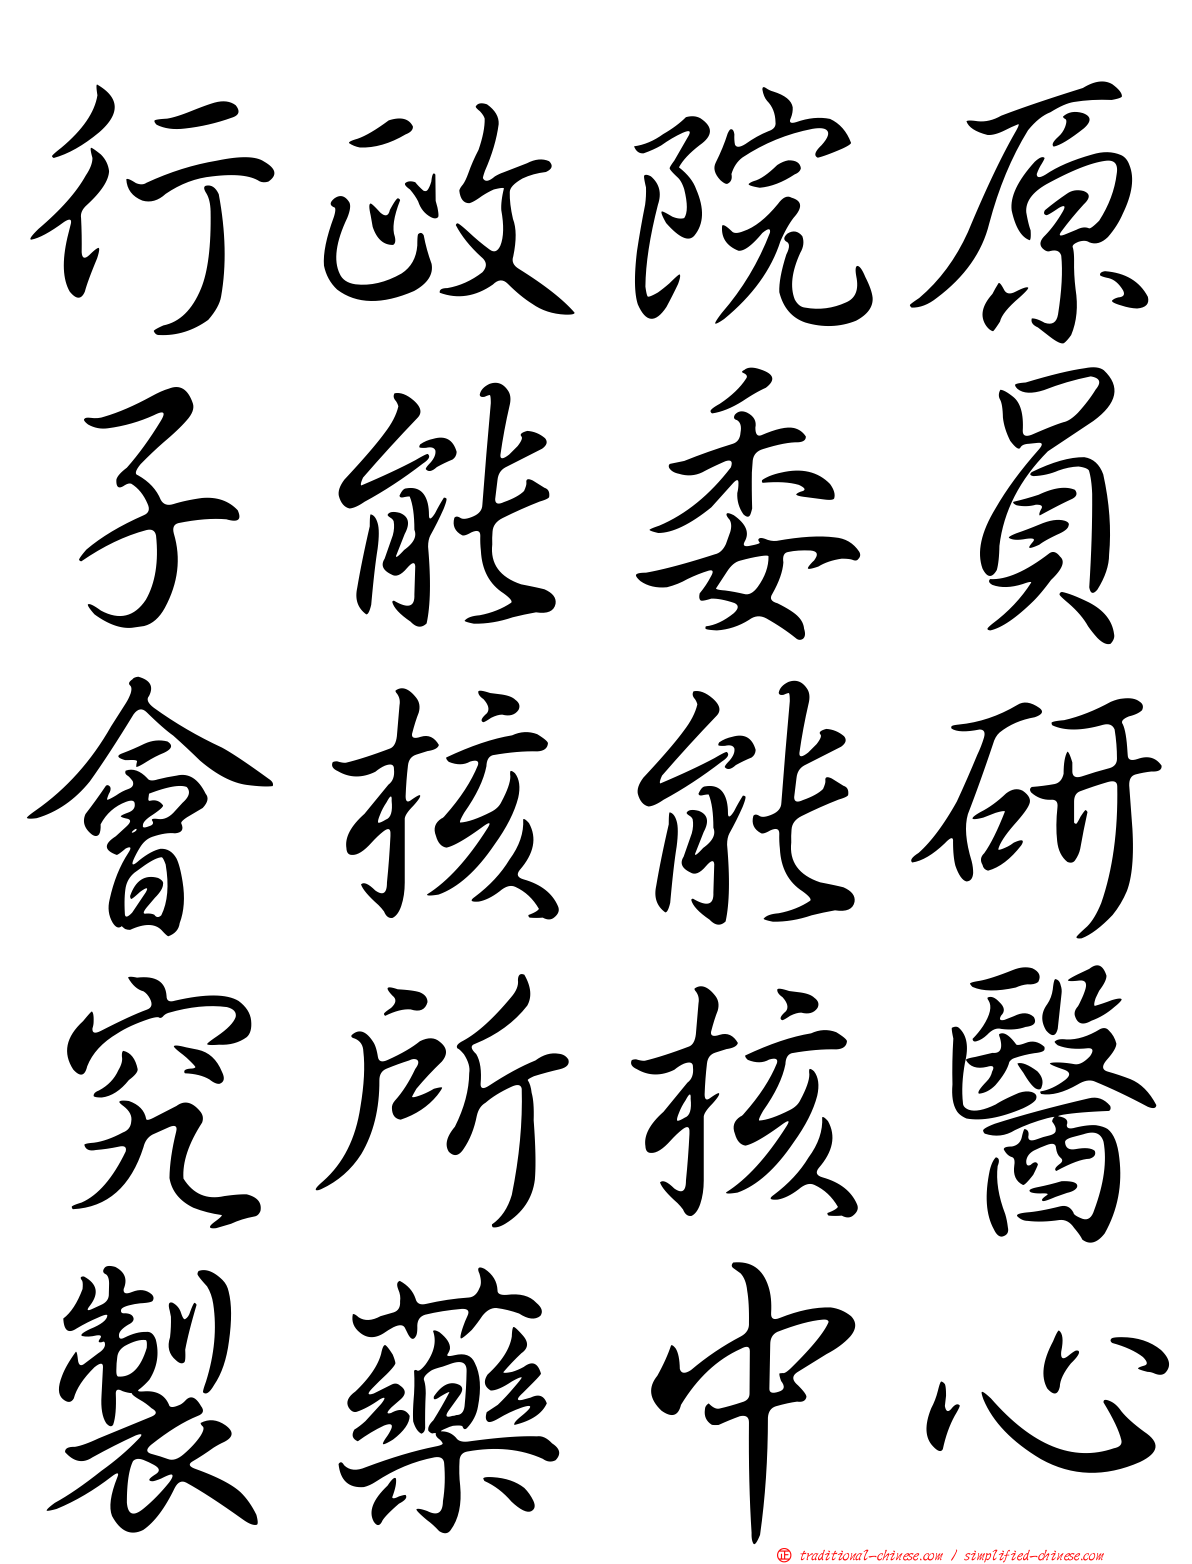 行政院原
子能委員
會核能研
究所核醫
製藥中心
正 traditional-chinese.com / simplified-chinese.com